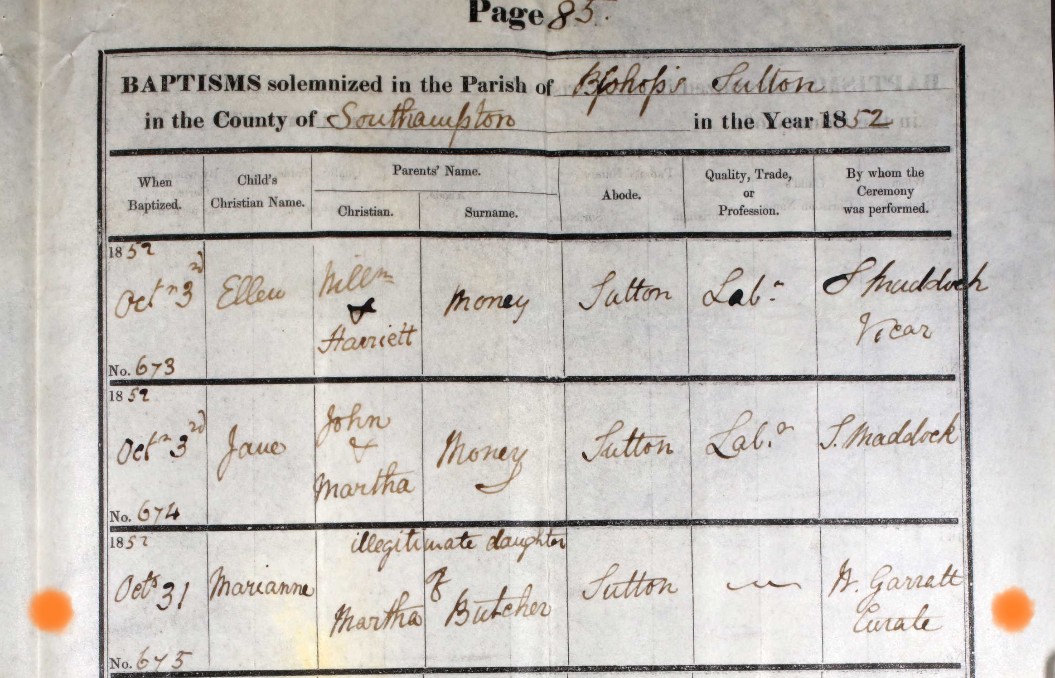 Page 85.
BAPTISMS solemnized in the Parish of Bishop's Sutton
in the County of Southampton in the Year 1852
When Baptized. Child's Christian Name. Parents' Name. Christian. Surname. Abode. Quality, Trade, or Profession. By whom the Ceremony was performed.
1852
Octr 3rd Ellen Willm & Harriett Money Sutton Labr S Maddock Vicar
No. 673
1852
Octr 3rd Jane John & Martha Money Sutton Labr S. Maddock
No. 674
1852
illegitimate daughter of
Octr 31 Marianne Martha Butcher Sutton — Garratt Curate
No. 675